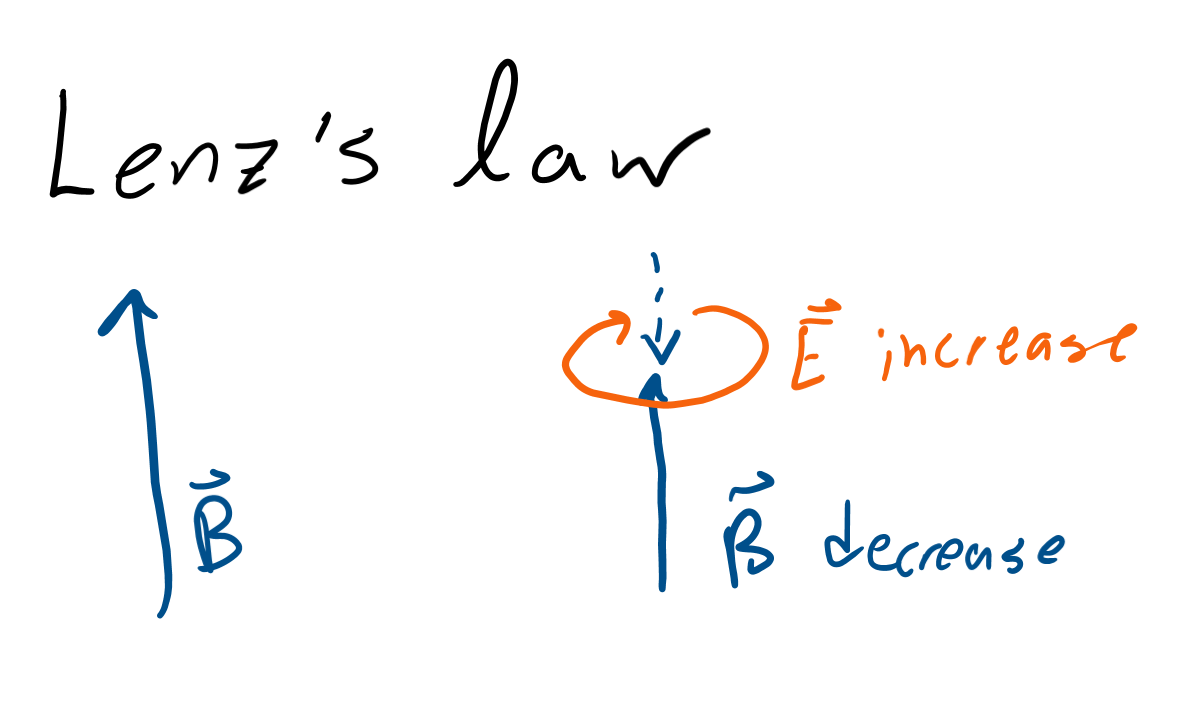 Lenz's law
E⃗ increase
B⃗
B⃗ decrease